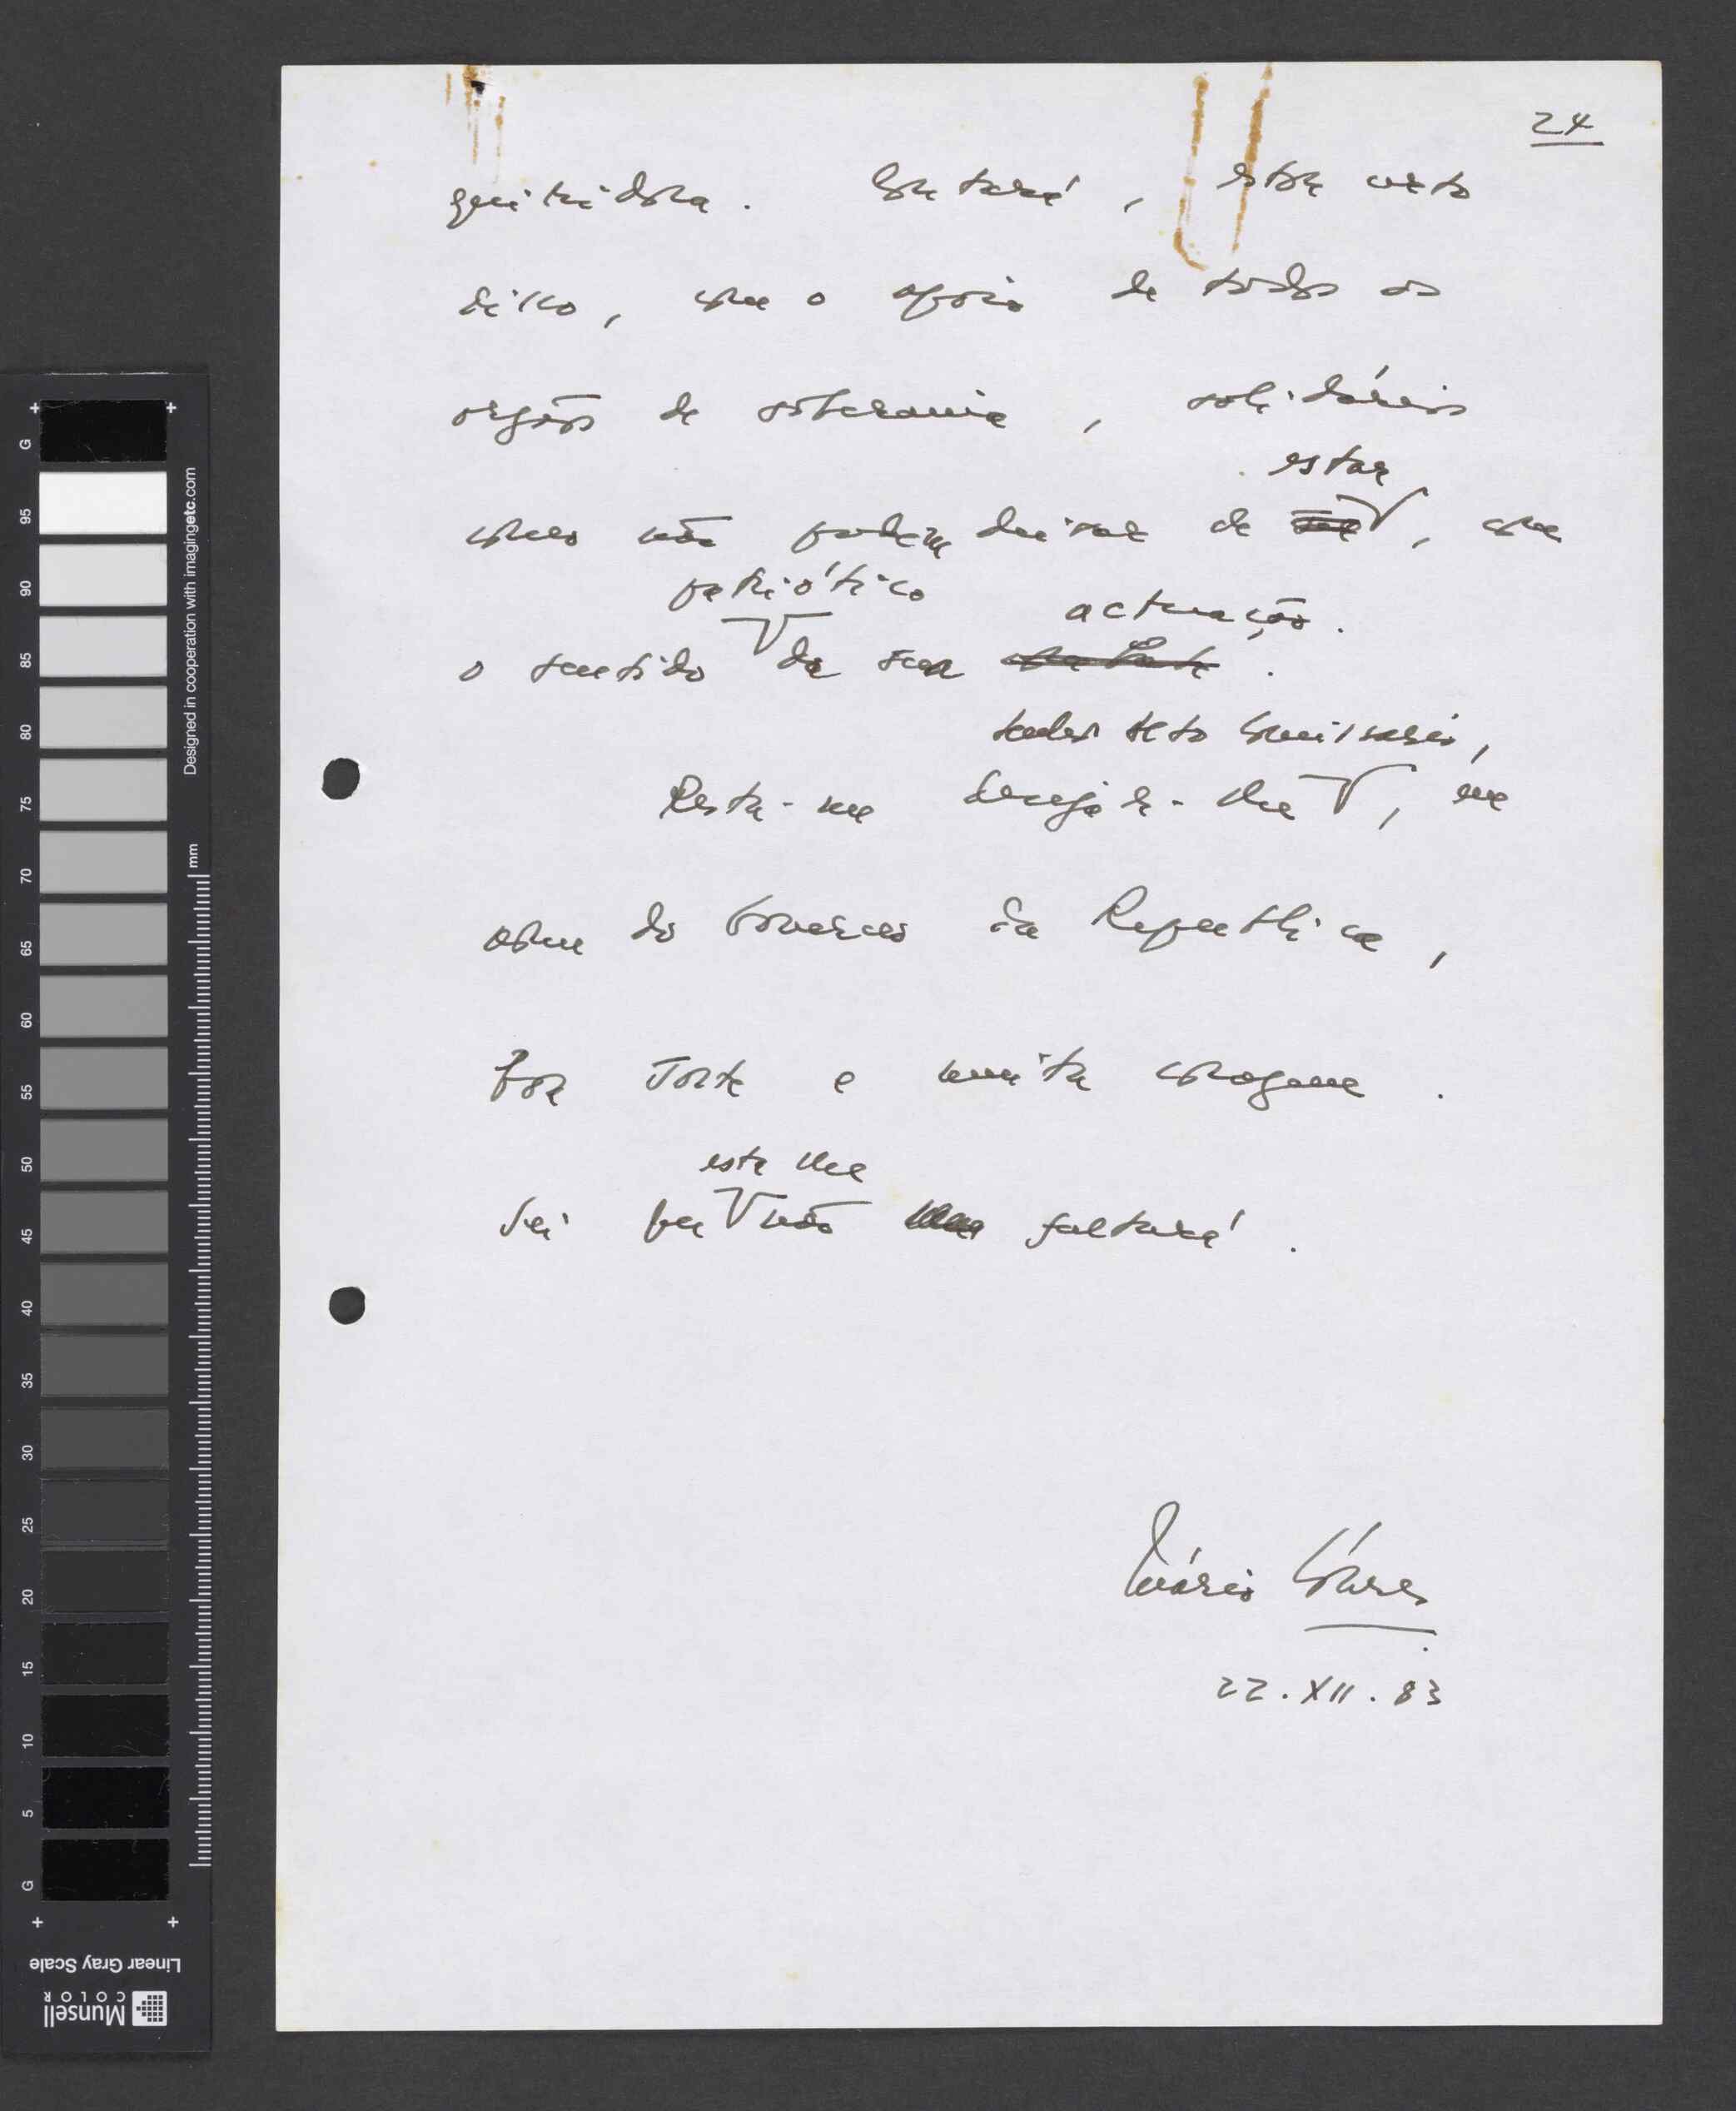 24
Contará, estou certo
disso, com o apoio de todos os
orgãos de soberania, solidários
estar
como não podem deixar de ser, com
patriótico actuação.
o sentido da sua
Senhor Alto Comissário,
Resta-me desejar-lhe, em
nome do Governo da República,
boa sorte e muita coragem.
esta lhe
Sei que não lhe faltará.
Mário Soares
22.XII.83
G
95
90
85
80
75
70
65
60
55
50
45
40
35
30
25
20
15
10
5
G
mm
Designed in cooperation with imagingetc.com
Linear Gray Scale
Munsell
COLOR